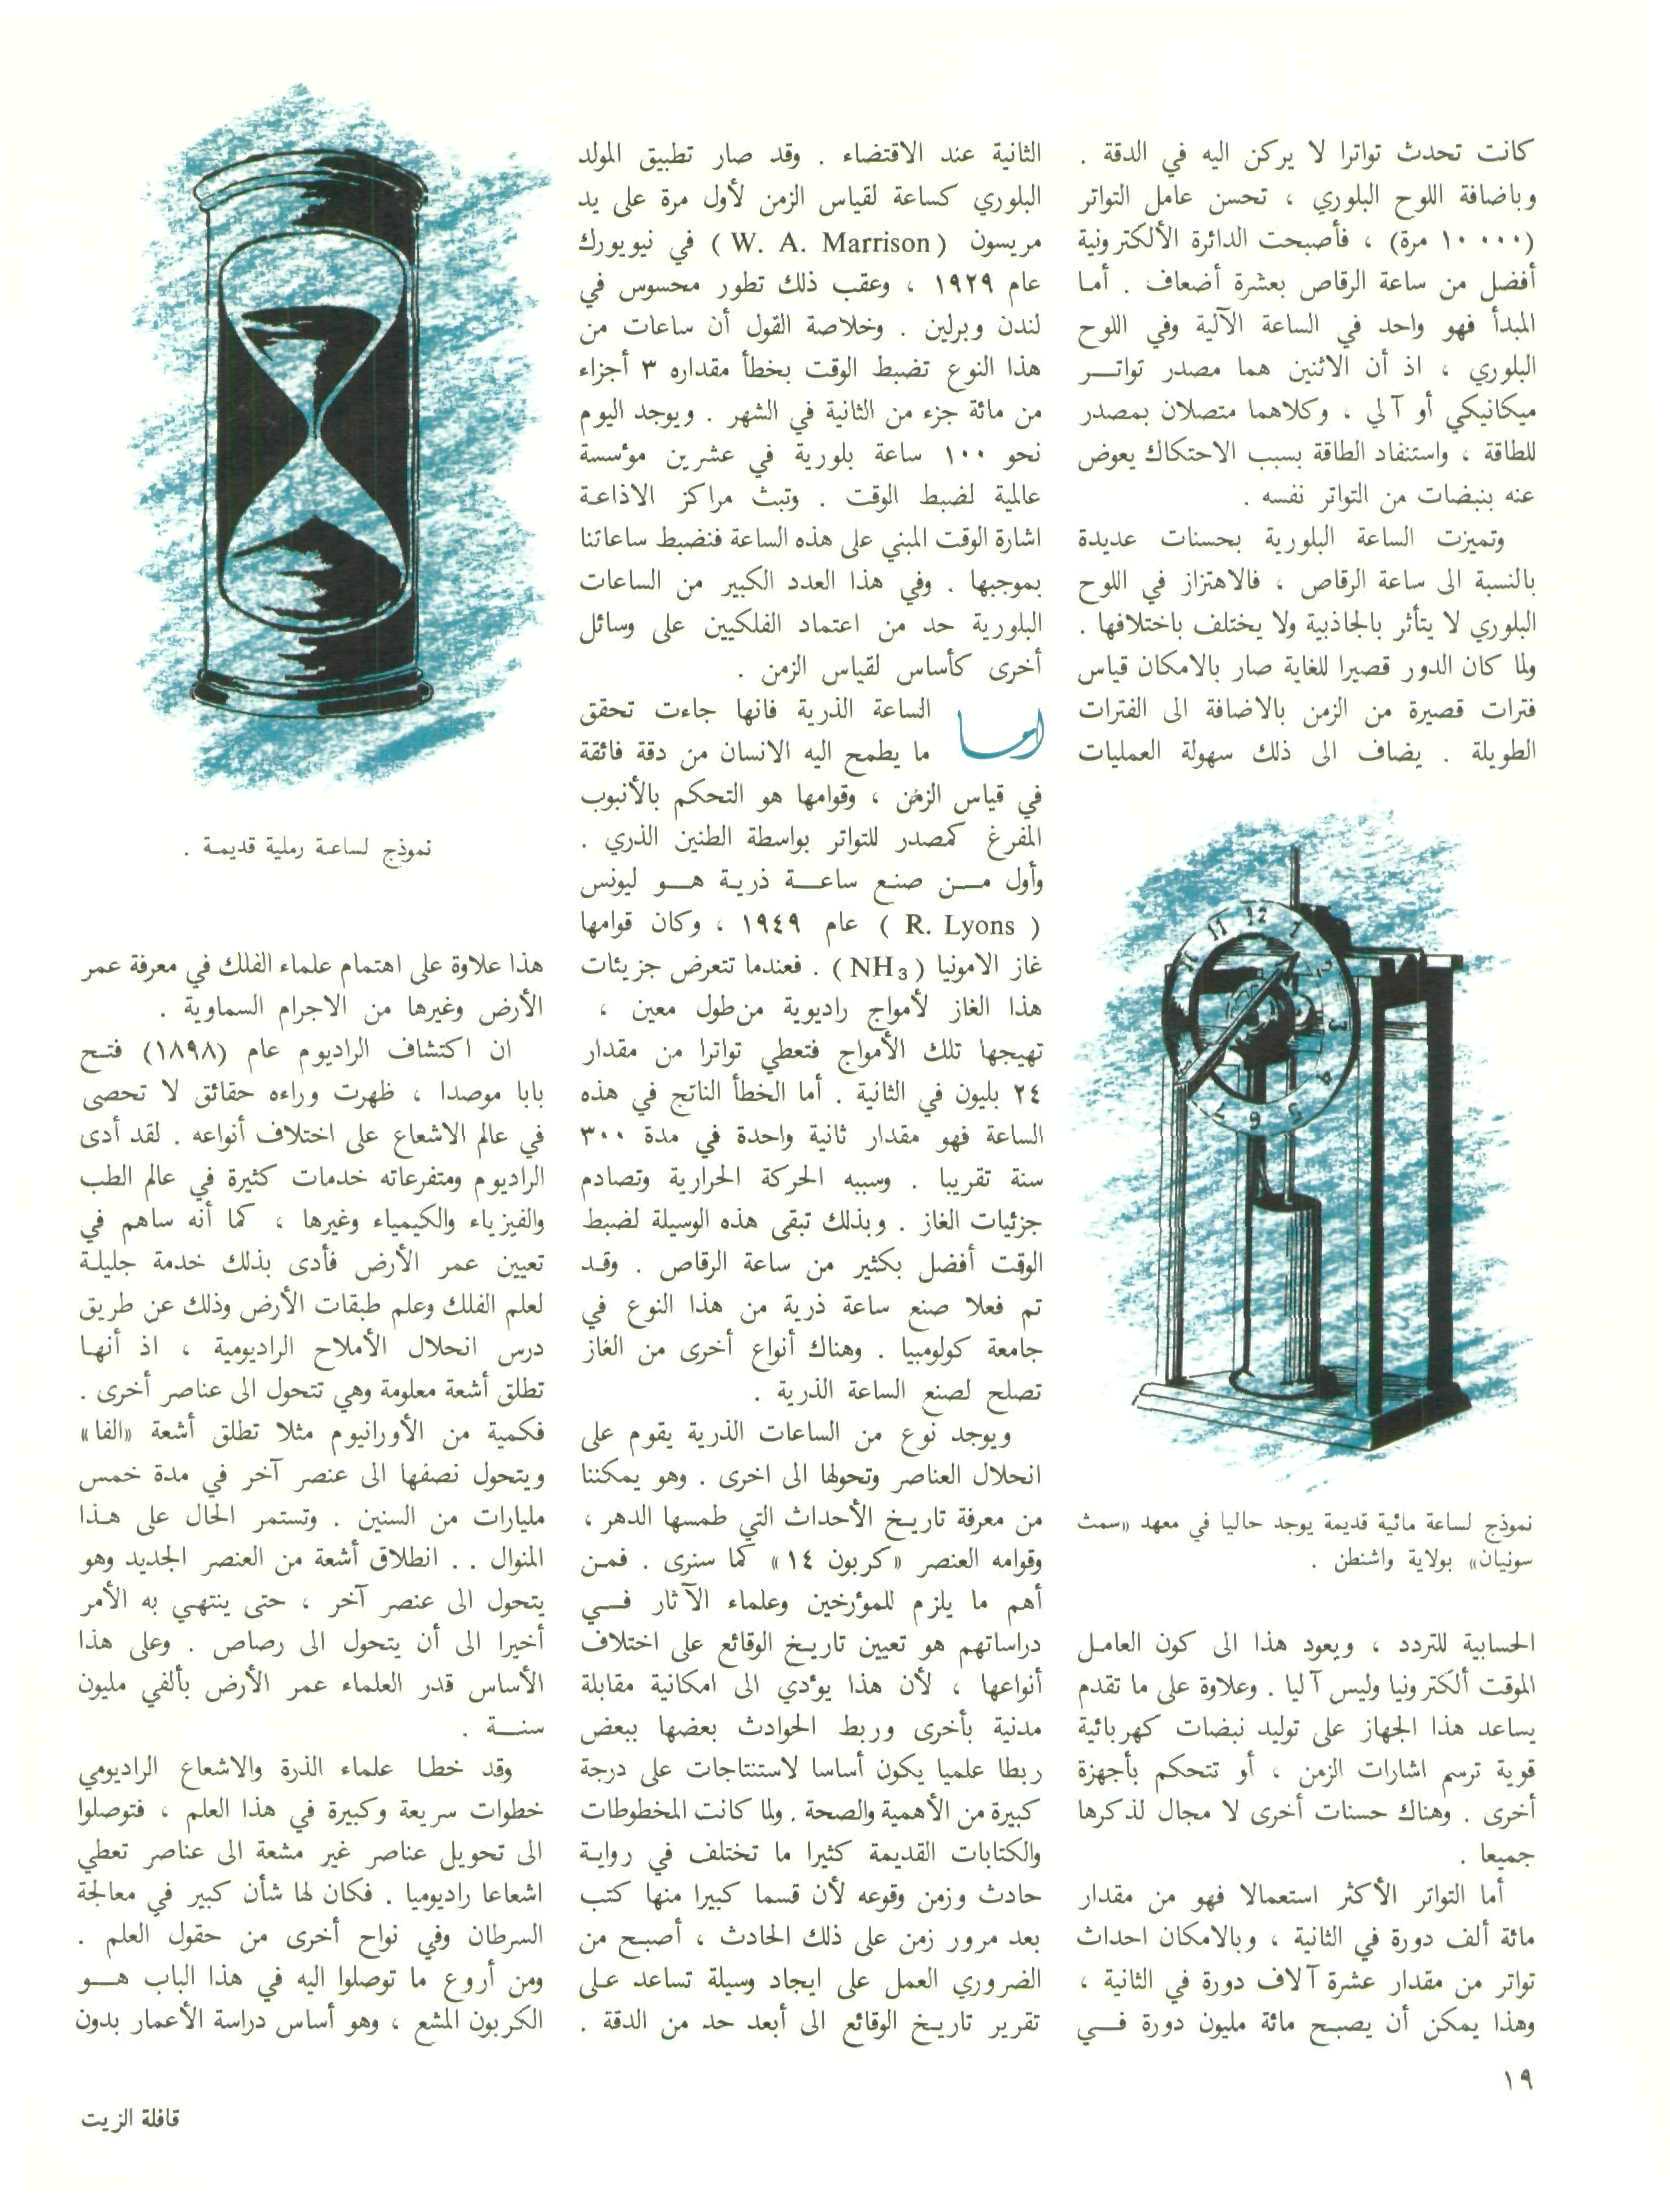 كانت تحدث تواترا لا يركن اليه في الدقة .
وباضافة اللوح البلوري ، تحسن عامل التواتر
(١٠٠٠٠ مرة) ، فأصبحت الدائرة الألكترونية
أفضل من ساعة الرقاص بعشرة أضعاف . أما
المبدأ فهو واحد في الساعة الآلية وفي اللوح
البلوري ، اذ أن الاثنين هما مصدر تواتـــر
ميكانيكي أو آلي ، وكلاهما متصلان بمصدر
للطاقة ، واستنفاد الطاقة بسبب الاحتكاك يعوض
عنه بنبضات من التواتر نفسه .
وتميزت الساعة البلورية بحسنات عديدة
بالنسبة الى ساعة الرقاص ، فالاهتزاز في اللوح
البلوري لا يتأثر بالجاذبية ولا يختلف باختلافها .
ولما كان الدور قصيرا للغاية صار بالامكان قياس
فترات قصيرة من الزمن بالاضافة الى الفترات
الطويلة . يضاف الى ذلك سهولة العمليات
12
11
1
2
3
4
5
6
7
نموذج لساعة مائية قديمة يوجد حاليا في معهد «سمث
سونيان» بولاية واشنطن .
الحسابية للتردد ، ويعود هذا الى كون العامل
الموقت ألكترونيا وليس آليا . وعلاوة على ما تقدم
يساعد هذا الجهاز على توليد نبضات كهربائية
قوية ترسم اشارات الزمن ، أو تتحكم بأجهزة
أخرى . وهناك حسنات أخرى لا مجال لذكرها
جميعا .
أما التواتر الأكثر استعمالا فهو من مقدار
مائة ألف دورة في الثانية ، وبالامكان احداث
تواتر من مقدار عشرة آلاف دورة في الثانية ،
وهذا يمكن أن يصبح مائة مليون دورة فـــي
الثانية عند الاقتضاء . وقد صار تطبيق المولد
البلوري كساعة لقياس الزمن لأول مرة على يد
مريسون ( W. A. Marrison ) في نيويورك
عام ١٩٢٩ ، وعقب ذلك تطور محسوس في
لندن وبرلين . وخلاصة القول أن ساعات من
هذا النوع تضبط الوقت بخطأ مقداره ٣ أجزاء
من مائة جزء من الثانية في الشهر . ويوجد اليوم
نحو ١٠٠ ساعة بلورية في عشرين مؤسسة
عالمية لضبط الوقت . وتبث مراكز الاذاعة
اشارة الوقت المبني على هذه الساعة فنضبط ساعاتنا
بموجبها . وفي هذا العدد الكبير من الساعات
البلورية حد من اعتماد الفلكيين على وسائل
أخرى كأساس لقياس الزمن .
اما الساعة الذرية فانها جاءت تحقق
ما يطمح اليه الانسان من دقة فائقة
في قياس الزمن ، وقوامها هو التحكم بالأنبوب
المفرغ كمصدر للتواتر بواسطة الطنين الذري .
وأول مـــن صنع ساعـــة ذرية هـــو ليونس
( R. Lyons ) عام ١٩٤٩ ، وكان قوامها
غاز الامونيا ( NH₃ ) . فعندما تتعرض جزيئات
هذا الغاز لأمواج راديوية من طول معين ،
تهيجها تلك الأمواج فتعطي تواترا من مقدار
٢٤ بليون في الثانية . أما الخطأ الناتج في هذه
الساعة فهو مقدار ثانية واحدة في مدة ٣٠٠
سنة تقريبا . وسببه الحركة الحرارية وتصادم
جزئيات الغاز . وبذلك تبقى هذه الوسيلة لضبط
الوقت أفضل بكثير من ساعة الرقاص . وقد
تم فعلا صنع ساعة ذرية من هذا النوع في
جامعة كولومبيا . وهناك أنواع أخرى من الغاز
تصلح لصنع الساعة الذرية .
ويوجد نوع من الساعات الذرية يقوم على
انحلال العناصر وتحولها الى اخرى . وهو يمكننا
من معرفة تاريخ الأحداث التي طمسها الدهر ،
وقوامه العنصر «كربون ١٤» كما سنرى . فمن
أهم ما يلزم للمؤرخين وعلماء الآثار فـــي
دراساتهم هو تعيين تاريخ الوقائع على اختلاف
أنواعها ، لأن هذا يؤدي الى امكانية مقابلة
مدنية بأخرى وربط الحوادث بعضها ببعض
ربطا علميا يكون أساسا لاستنتاجات على درجة
كبيرة من الأهمية والصحة . ولما كانت المخطوطات
والكتابات القديمة كثيرا ما تختلف في رواية
حادث وزمن وقوعه لأن قسما كبيرا منها كتب
بعد مرور زمن على ذلك الحادث ، أصبح من
الضروري العمل على ايجاد وسيلة تساعد على
تقرير تاريخ الوقائع الى أبعد حد من الدقة .
نموذج لساعة رملية قديمة .
هذا علاوة على اهتمام علماء الفلك في معرفة عمر
الأرض وغيرها من الاجرام السماوية .
ان اكتشاف الراديوم عام (١٨٩٨) فتح
بابا موصدا ، ظهرت وراءه حقائق لا تحصى
في عالم الاشعاع على اختلاف أنواعه . لقد أدى
الراديوم ومتفرعاته خدمات كثيرة في عالم الطب
والفيزياء والكيمياء وغيرها ، كما أنه ساهم في
تعيين عمر الأرض فأدى بذلك خدمة جليلة
لعلم الفلك وعلم طبقات الأرض وذلك عن طريق
درس انحلال الأملاح الراديومية ، اذ أنها
تطلق أشعة معلومة وهي تتحول الى عناصر أخرى .
فكمية من الأورانيوم مثلا تطلق أشعة «الفا»
ويتحول نصفها الى عنصر آخر في مدة خمس
مليارات من السنين . وتستمر الحال على هـذا
المنوال . . انطلاق أشعة من العنصر الجديد وهو
يتحول الى عنصر آخر ، حتى ينتهي به الأمر
أخيرا الى أن يتحول الى رصاص . وعلى هذا
الأساس قدر العلماء عمر الأرض بألفي مليون
سنـــة .
وقد خطا علماء الذرة والاشعاع الراديومي
خطوات سريعة وكبيرة في هذا العلم ، فتوصلوا
الى تحويل عناصر غير مشعة الى عناصر تعطي
اشعاعا راديوميا . فكان لها شأن كبير في معالجة
السرطان وفي نواح أخرى من حقول العلم .
ومن أروع ما توصلوا اليه في هذا الباب هـــو
الكربون المشع ، وهو أساس دراسة الأعمار بدون
١٩
قافلة الزيت